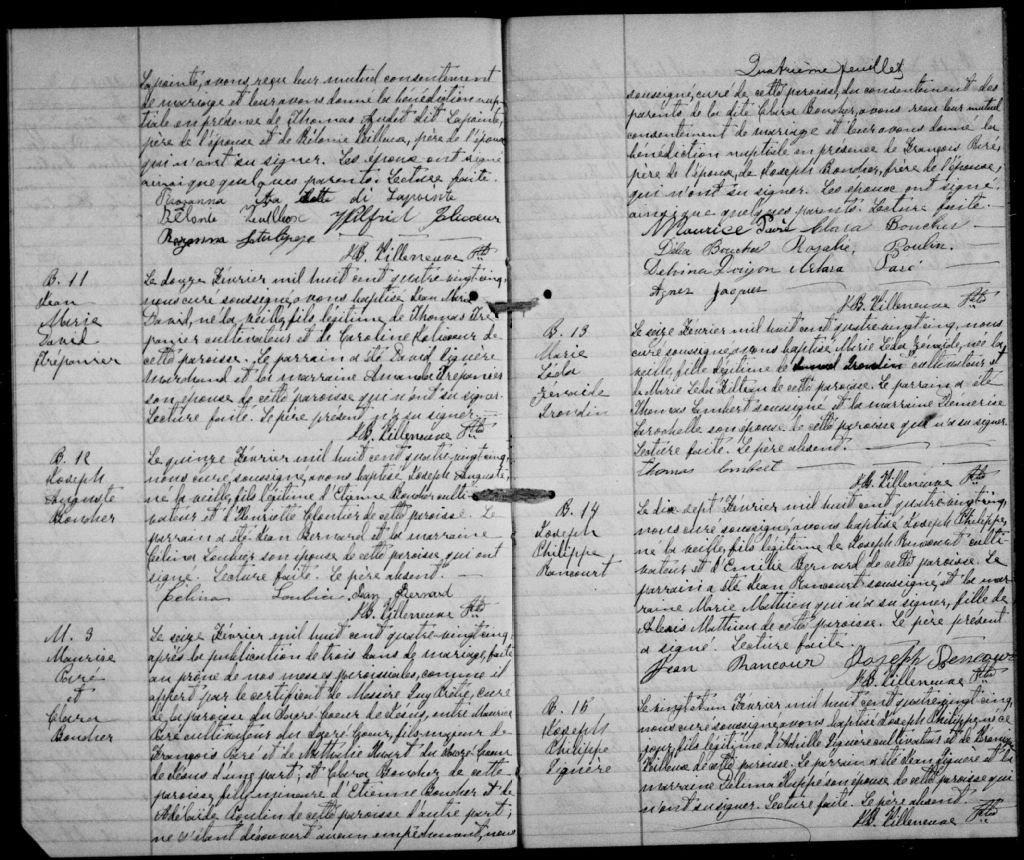 Lapointe, avons reçu leur mutuel consentement
de mariage et leur avons donné la bénédiction nup-
tiale en présence de Thomas Audet dit Lapointe,
père de l'épouse et de Bélonie Veilleux, père de l'époux
qui n'ont su signer. Les époux ont signé
ainsi que quelques parents. Lecture faite.
Wilfrid
J.B. Villeneuve Ptre
B. 11
Jean
Marie
David
Trépanier
Le douze Février mil huit cent quatre-vingt-cinq,
nous curé soussigné, avons baptisé Jean Marie
David, né la veille, fils légitime de Thomas Tré-
panier cultivateur et de Caroline de
cette paroisse. Le parrain a été David Liguère
marchand et la marraine Amanda Trépanier
son épouse de cette paroisse qui n'ont su signer.
Lecture faite. Le père présent n'a su signer.
J.B. Villeneuve Ptre
B. 12
Joseph
Auguste
Boucher
Le quinze Février mil huit cent quatre-vingt-cinq,
nous curé, soussigné, avons baptisé Joseph Auguste,
né la veille, fils légitime d'Etienne Boucher culti-
vateur et d'Henriette Cloutier de cette paroisse. Le
parrain a été Jean Bernard et la marraine
Célina Loubier son épouse de cette paroisse, qui ont
signé. Lecture faite. Le père absent.
Célina Loubier, Jean Bernard
J.B. Villeneuve Ptre
M. 3
Maurice
Paré
et
Clara
Boucher
Le seize Février mil huit cent quatre-vingt-cinq,
après la publication de trois bans de mariage, faite
au prône de nos messes paroissiales, comme il
appert par le certificat de Messire curé
de la paroisse du Sacré-Coeur de Jésus, entre Maurice
Paré cultivateur du Sacré-Coeur, fils majeur de
François Paré et de Nathalie Huart du Sacré-Coeur
de Jésus d'une part; et Clara Boucher de cette
paroisse, fille mineure d'Etienne Boucher et de
Adélaïde Poulin de cette paroisse d'autre part;
ne s'étant découvert aucun empêchement, nous
Quatrième feuillet
soussigné, curé de cette paroisse, du consentement des
parents de la dite Clara Boucher, avons reçu leur mutuel
consentement de mariage et leur avons donné la
bénédiction nuptiale en présence de François Paré,
père de l'époux, de Joseph Boucher, frère de l'épouse,
qui n'ont su signer. Les époux ont signé,
ainsi que quelques parents. Lecture faite.
Maurice Paré Clara Boucher
Délia Boucher Rosalie Poulin
Delvina Paré
Agnes Jacques
J.B. Villeneuve Ptre
B. 13
Marie
Léda
Zénaïde
Grondin
Le seize Février mil huit cent quatre-vingt-cinq, nous
curé soussigné, avons baptisé Marie Léda Zénaïde, née la
veille, fille légitime de Grondin cultivateur et
de Marie Léda de cette paroisse. Le parrain a été
Thomas Lambert soussigné et la marraine Démerise
Larochelle son épouse de cette paroisse qui n'a su signer.
Lecture faite. Le père absent.
Thomas Lambert
J.B. Villeneuve Ptre
B. 14
Joseph
Philippe
Rancourt
Le dix-sept Février mil huit cent quatre-vingt-cinq,
nous curé soussigné, avons baptisé Joseph Philippe,
né la veille, fils légitime de Joseph Rancourt culti-
vateur et d'Emilie Bernard de cette paroisse. Le
parrain a été Jean Rancourt soussigné, et la mar-
raine Marie Mathieu qui n'a su signer, fille de
Alexis Mathieu de cette paroisse. Le père présent
a signé. Lecture faite.
Jean Rancour Joseph Rencour
J.B. Villeneuve Ptre
B. 15
Joseph
Philippe
Liguère
Le vingt et un Février mil huit cent quatre-vingt-cinq,
nous curé soussigné, avons baptisé Joseph Philippe, né ce
jour, fils légitime d'Achille Liguère cultivateur et de
Veilleux de cette paroisse. Le parrain a été Jean Liguère et la
marraine Délima son épouse de cette paroisse qui
n'ont su signer. Lecture faite. Le père absent.
J.B. Villeneuve Ptre